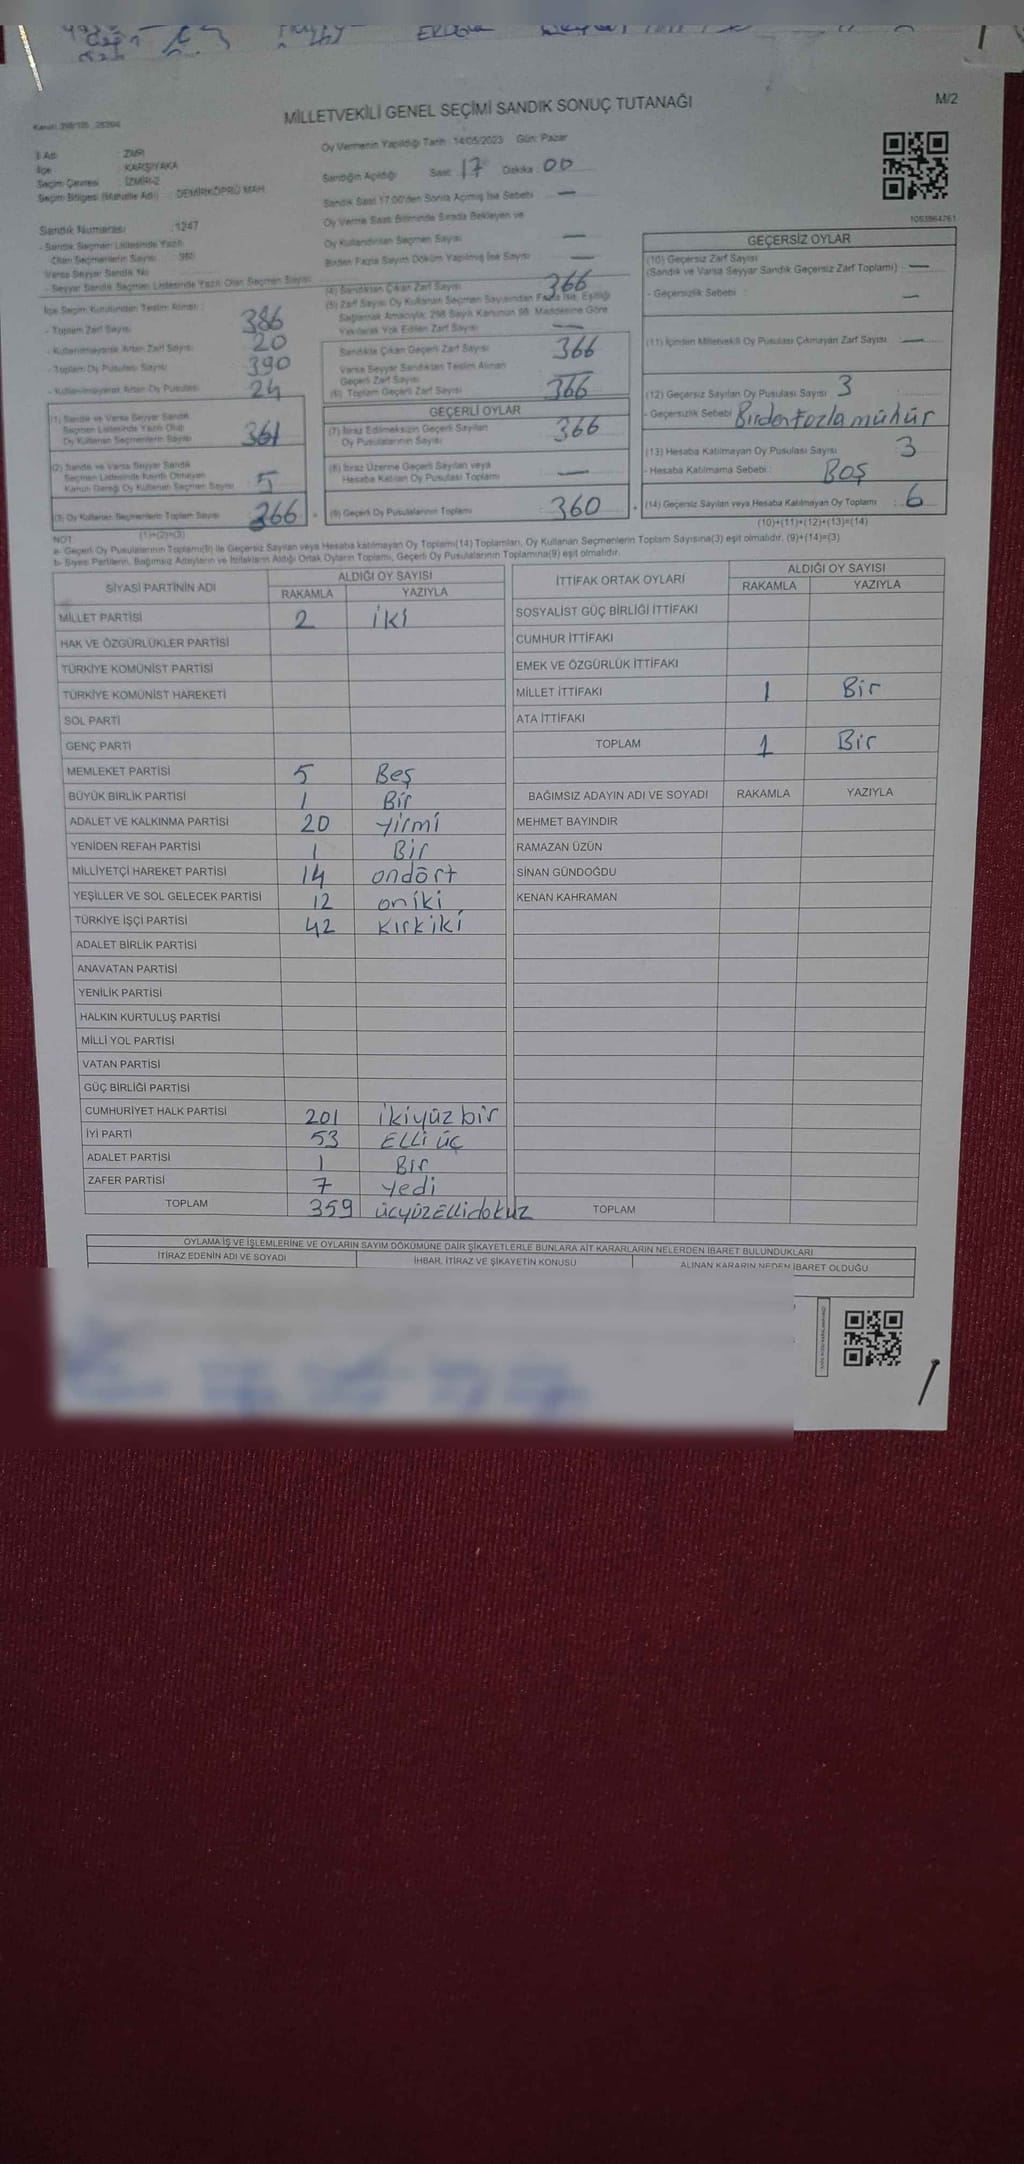 MİLLETVEKİLİ GENEL SEÇİMİ SANDIK SONUÇ TUTANAĞI
M/2
İlçe : KARŞIYAKA
Seçim Çevresi : İZMİR-2
Seçim Bölgesi (Mahalle Adı) : DEMİRKÖPRÜ MAH
Sandık Numarası : 1247
- Sandık Seçmen Listesinde Yazılı
Olan Seçmenlerin Sayısı
Varsa Seyyar Sandık No
- Seyyar Sandık Seçmen Listesinde Yazılı Olan Seçmen Sayısı
Oy Vermenin Yapıldığı Tarih : 14/05/2023 Gün: Pazar
Sandığın Açıldığı Saat: 17 Dakika : 00
Sandık Saat 17:00'den Sonra Açılmış İse Sebebi —
Oy Verme Saati Bitiminde Sırada Bekleyen ve
Oy Kullandırılan Seçmen Sayısı —
Birden Fazla Sayım Döküm Yapılmış İse Sayısı —
1053864761
İlçe Seçim Kurulundan Teslim Alınan :
- Toplam Zarf Sayısı 386
- Kullanılmayarak Artan Zarf Sayısı 20
- Toplam Oy Pusulası Sayısı 390
- Kullanılmayarak Artan Oy Pusulası 24
(1) Sandık ve Varsa Seyyar Sandık
Seçmen Listesinde Yazılı Olup
Oy Kullanan Seçmenlerin Sayısı 361
(2) Sandık ve Varsa Seyyar Sandık
Seçmen Listesinde Kayıtlı Olmayan
Kanun Gereği Oy Kullanan Seçmen Sayısı 5
(3) Oy Kullanan Seçmenlerin Toplam Sayısı 366
(1)+(2)=(3)
(4) Sandıktan Çıkan Zarf Sayısı 366
(5) Zarf Sayısı Oy Kullanan Seçmen Sayısından Fazla İse, Eşitliği
Sağlamak Amacıyla; 298 Sayılı Kanunun 98. Maddesine Göre
Yakılarak Yok Edilen Zarf Sayısı —
Sandıkta Çıkan Geçerli Zarf Sayısı 366
Varsa Seyyar Sandıktan Teslim Alınan
Geçerli Zarf Sayısı —
(6) Toplam Geçerli Zarf Sayısı 366
GEÇERLİ OYLAR
(7) İtiraz Edilmeksizin Geçerli Sayılan
Oy Pusulalarının Sayısı 366
(8) İtiraz Üzerine Geçerli Sayılan veya
Hesaba Katılan Oy Pusulası Toplamı —
(9) Geçerli Oy Pusulalarının Toplamı 360
GEÇERSİZ OYLAR
(10) Geçersiz Zarf Sayısı
(Sandık ve Varsa Seyyar Sandık Geçersiz Zarf Toplamı) —
- Geçersizlik Sebebi : —
(11) İçinden Milletvekili Oy Pusulası Çıkmayan Zarf Sayısı —
(12) Geçersiz Sayılan Oy Pusulası Sayısı 3
- Geçersizlik Sebebi Birden fazla mühür
(13) Hesaba Katılmayan Oy Pusulası Sayısı 3
- Hesaba Katılmama Sebebi : BOŞ
(14) Geçersiz Sayılan veya Hesaba Katılmayan Oy Toplamı : 6
(10)+(11)+(12)+(13)=(14)
NOT
a- Geçerli Oy Pusulalarının Toplamı(9) ile Geçersiz Sayılan veya Hesaba katılmayan Oy Toplamı(14) Toplamları, Oy Kullanan Seçmenlerin Toplam Sayısına(3) eşit olmalıdır. (9)+(14)=(3)
b- Siyasi Partilerin, Bağımsız Adayların ve İttifakların Aldığı Ortak Oyların Toplamı, Geçerli Oy Pusulalarının Toplamına(9) eşit olmalıdır.
SİYASİ PARTİNİN ADI ALDIĞI OY SAYISI
RAKAMLA YAZIYLA
MİLLET PARTİSİ 2 iki
HAK VE ÖZGÜRLÜKLER PARTİSİ
TÜRKİYE KOMÜNİST PARTİSİ
TÜRKİYE KOMÜNİST HAREKETİ
SOL PARTİ
GENÇ PARTİ
MEMLEKET PARTİSİ 5 Beş
BÜYÜK BİRLİK PARTİSİ 1 Bir
ADALET VE KALKINMA PARTİSİ 20 yirmi
YENİDEN REFAH PARTİSİ 1 Bir
MİLLİYETÇİ HAREKET PARTİSİ 14 ondört
YEŞİLLER VE SOL GELECEK PARTİSİ 12 oniki
TÜRKİYE İŞÇİ PARTİSİ 42 Kırkiki
ADALET BİRLİK PARTİSİ
ANAVATAN PARTİSİ
YENİLİK PARTİSİ
HALKIN KURTULUŞ PARTİSİ
MİLLİ YOL PARTİSİ
VATAN PARTİSİ
GÜÇ BİRLİĞİ PARTİSİ
CUMHURİYET HALK PARTİSİ 201 ikiyüz bir
İYİ PARTİ 53 Elli üç
ADALET PARTİSİ 1 Bir
ZAFER PARTİSİ 7 yedi
TOPLAM 359 üçyüzellidokuz
İTTİFAK ORTAK OYLARI ALDIĞI OY SAYISI
RAKAMLA YAZIYLA
SOSYALİST GÜÇ BİRLİĞİ İTTİFAKI
CUMHUR İTTİFAKI
EMEK VE ÖZGÜRLÜK İTTİFAKI
MİLLET İTTİFAKI 1 Bir
ATA İTTİFAKI
TOPLAM 1 Bir
BAĞIMSIZ ADAYIN ADI VE SOYADI RAKAMLA YAZIYLA
MEHMET BAYINDIR
RAMAZAN ÜZÜN
SİNAN GÜNDOĞDU
KENAN KAHRAMAN
TOPLAM
OYLAMA İŞ VE İŞLEMLERİNE VE OYLARIN SAYIM DÖKÜMÜNE DAİR ŞİKAYETLERLE BUNLARA AİT KARARLARIN NELERDEN İBARET BULUNDUKLARI
İTİRAZ EDENİN ADI VE SOYADI İHBAR, İTİRAZ VE ŞİKAYETİN KONUSU ALINAN KARARIN NEDEN İBARET OLDUĞU